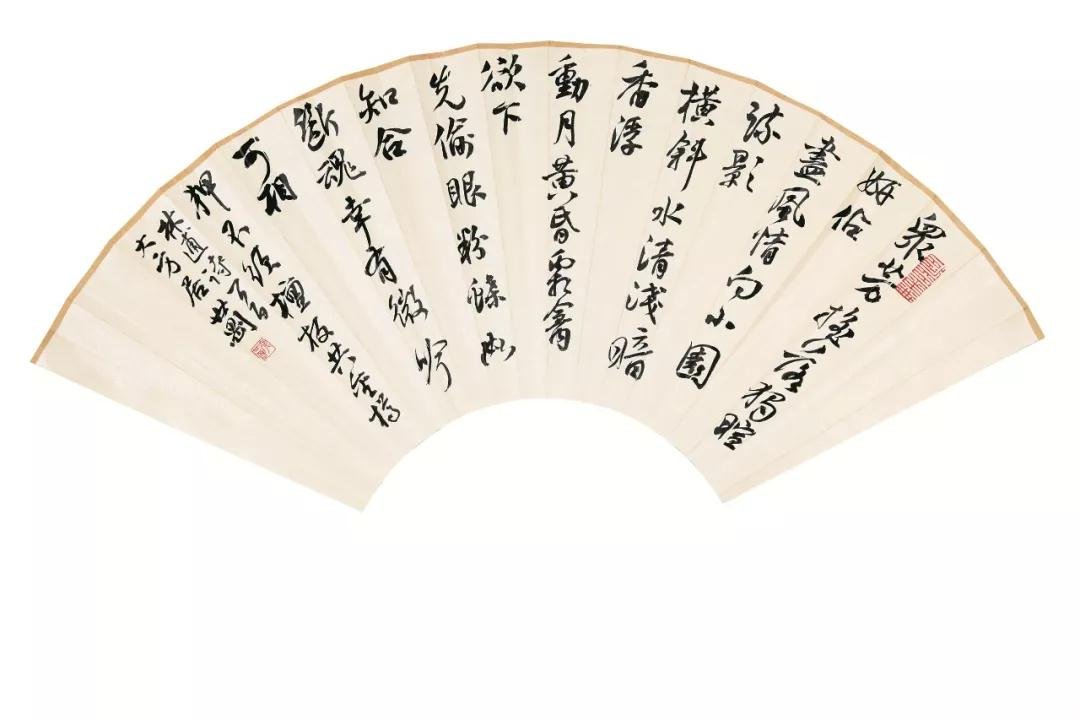 眾芳搖落獨暄
妍佔
盡風情向小園
疏影
橫斜水清淺暗
香浮
動月黃昏霜禽
欲下
先偷眼粉蝶如
知合
斷魂幸有微吟
可相
狎不須檀板共金樽
林逋詩
大方居